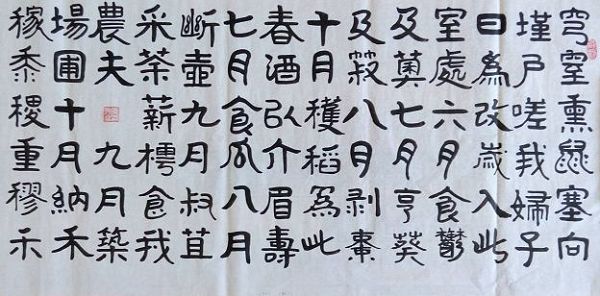 穹窒熏鼠塞向
墐户嗟我婦子
曰為改歲入此
室處六月食鬱
及薁七月亨葵
及菽八月剥棗
十月穫稻為此
春酒以介眉壽
七月食瓜八月
斷壺九月叔苴
采荼薪樗食我
農夫 九月築
場圃十月納禾
稼黍稷重穋禾